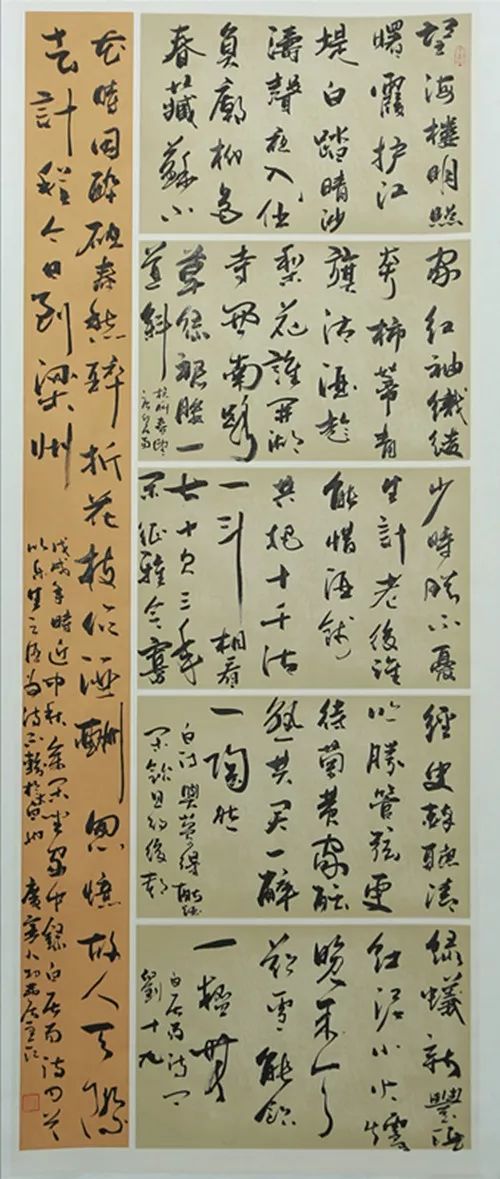 望海樓明照
曙霞护江
堤白踏晴沙
濤聲夜入伍
員廟柳色
春藏蘇小
家红袖織绫
夸柿蒂青
旗沽酒趁
梨花誰开湖
寺西南路
草绿裙腰一
道斜
杭州春望
白居易
少時猶不憂
生計老後誰
能惜酒钱
共把十千沽
一斗相看
七十欠三年
闲征雅令窮
經史醉聽清
吟勝管弦更
待菊黄家醖
熟共君一醉
一陶然
白诗與夢得沽酒
闲飲且约後期
绿蟻新醅酒
红泥小火爐
晚来天
欲雪能飲
一杯無
白居易诗问
劉十九
花時同醉破春愁醉折花枝作酒酬忽憶故人天際
去計程今日到梁州
戊戌年時近中秋闲坐家中録白居易诗四首